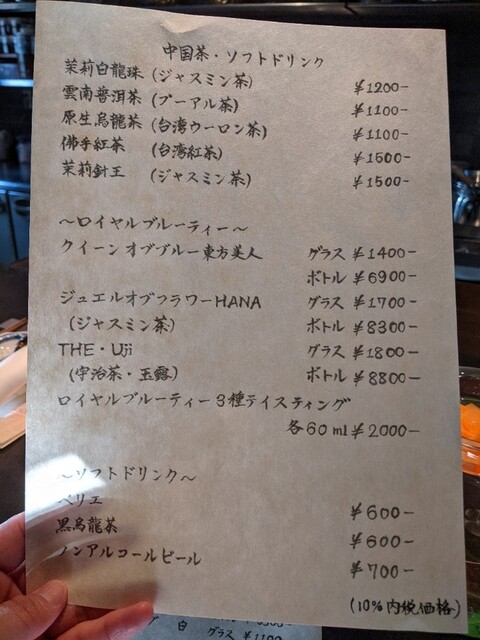 中国茶・ソフトドリンク
茉莉白龍珠 (ジャスミン茶) ¥1200-
雲南普洱茶 (プーアル茶) ¥1100-
原生烏龍茶 (台湾ウーロン茶) ¥1100-
佛手紅茶 (台湾紅茶) ¥1500-
茉莉針王 (ジャスミン茶) ¥1500-
～ロイヤルブルーティー～
クイーンオブブルー東方美人 グラス ¥1400-
ボトル ¥6900-
ジュエルオブフラワーHANA グラス ¥1700-
(ジャスミン茶) ボトル ¥8300-
THE・Uji グラス ¥1800-
(宇治茶・玉露) ボトル ¥8800-
ロイヤルブルーティー3種テイスティング
各60ml ¥2000-
～ソフトドリンク～
ペリエ ¥600-
黒烏龍茶 ¥600-
ノンアルコールビール ¥700-
(10%内税価格)
白 グラス ¥1100